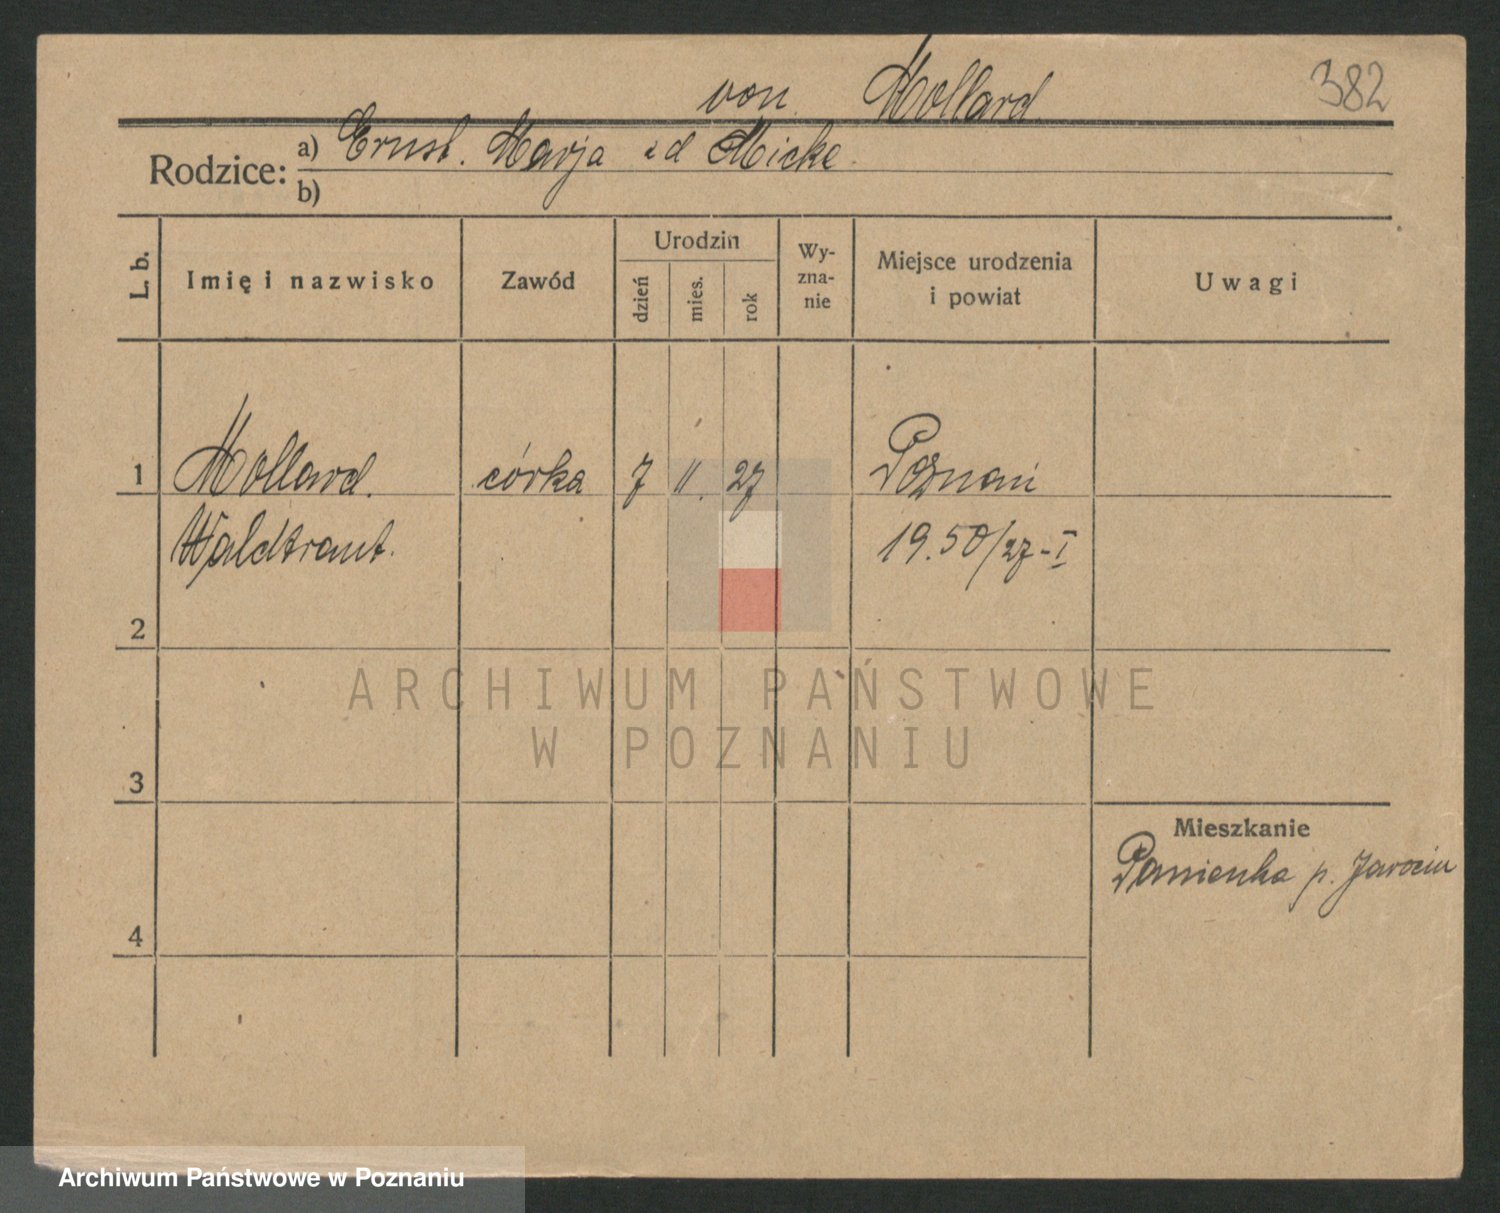 von Mollard
382
Rodzice: a) Ernst. Marja zd Micke.
b)
L. b. Imię i nazwisko Zawód Urodzin dzień mies. rok Wy-zna-nie Miejsce urodzenia i powiat Uwagi
1 Mollard. córka 7 11. 27 Poznań
Waldtraut. 19.50/27-I
2
3
Mieszkanie
Panienka p. Jarocin
4
ARCHIWUM PAŃSTWOWE
W POZNANIU
Archiwum Państwowe w Poznaniu